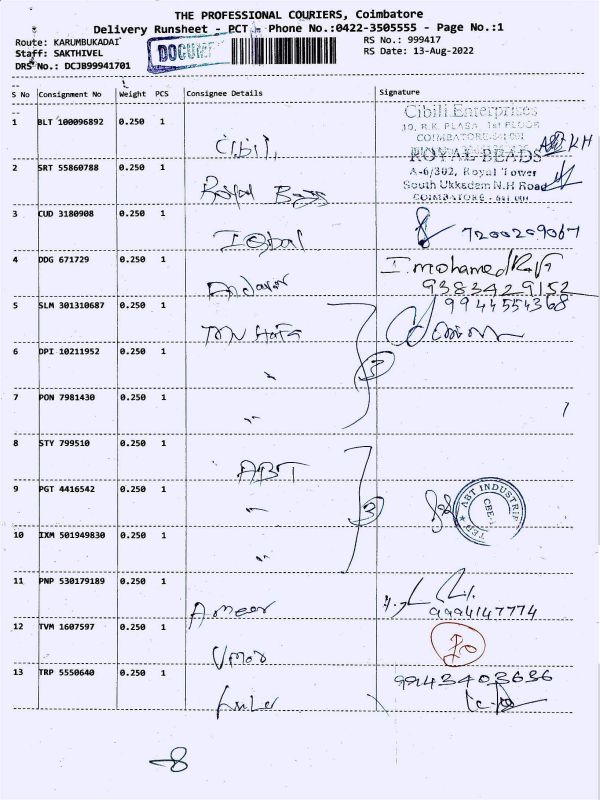 THE PROFESSIONAL COURIERS, Coimbatore
Delivery Runsheet - PCT - Phone No.:0422-3505555 - Page No.:1
Route: KARUMBUKADAI RS No.: 999417
Staff: SAKTHIVEL DOCUM RS Date: 13-Aug-2022
DRS No.: DCJB99941701
S No Consignment No Weight PCS Consignee Details Signature
1 BLT 100096892 0.250 1 Cibili Cibili Enterprises
10, R.K. PLASA, 1st FLOOR
COIMBATORE-641 001
2 SRT 55860788 0.250 1 Royal ROYAL BEADS
A-6/302, Royal Tower
South Ukkadam N.H Road
COIMBATORE - 641 001
3 CUD 3180908 0.250 1 Iqbal 7200209067
4 DDG 671729 0.250 1 I. mohamed
9383429152
5 SLM 301310687 0.250 1 9944554368
6 DPI 10211952 0.250 1 " 3
7 PON 7981430 0.250 1 "
8 STY 799510 0.250 1 ABT
9 PGT 4416542 0.250 1 " 3 ABT INDUSTRI
CBE-1
10 IXM 501949830 0.250 1 "
11 PNP 530179189 0.250 1 Ameer 9994147774
12 TVM 1607597 0.250 1 Umar
13 TRP 5550640 0.250 1 99443403636
8